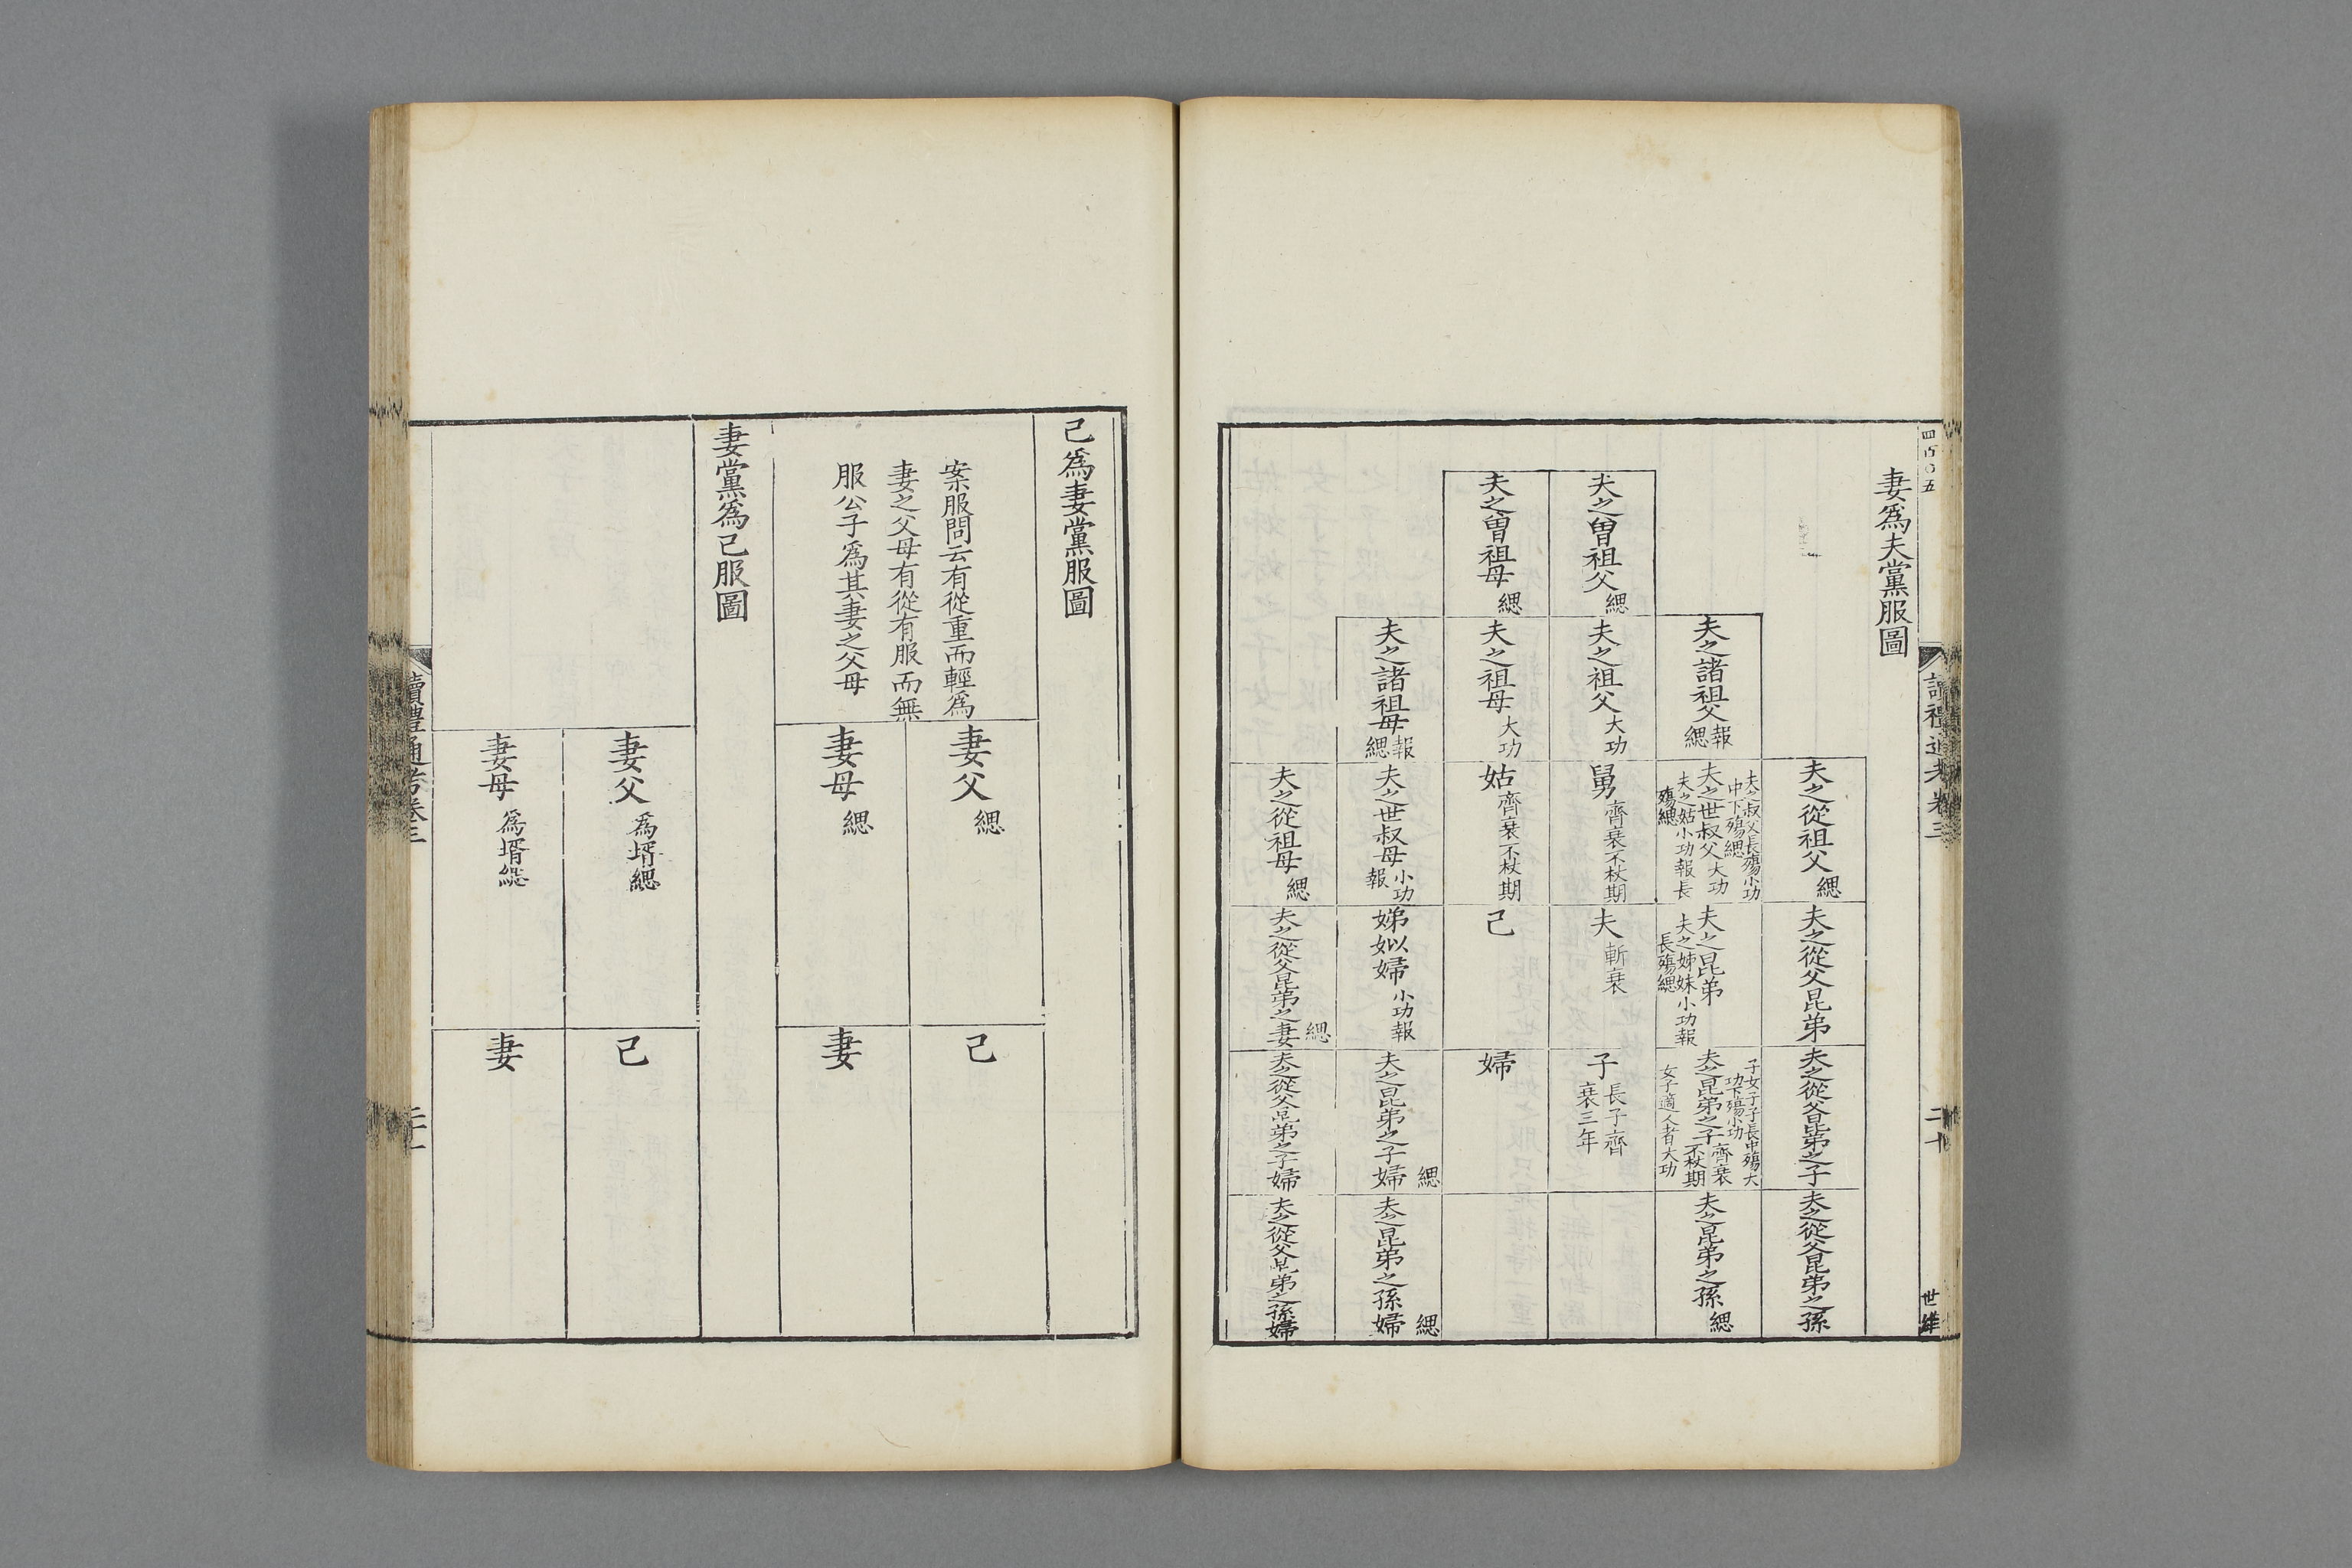 妻爲夫黨服圖
夫之從祖父 緦
夫之從父昆弟
夫之從父昆弟之子
夫之從父昆弟之孫
夫之諸祖父 報緦
夫之叔父長殤小功
中下殤緦
夫之世叔父大功
夫之姑小功報長
殤緦
夫之昆弟
夫之姊妹小功報
長殤緦
子女子子長中殤大
功下殤小功
夫之昆弟之子 齊衰不杖期
女子適人者大功
夫之昆弟之孫 緦
夫之曾祖父 緦
夫之祖父 大功
舅 齊衰不杖期
夫 斬衰
子 長子齊衰三年
夫之曾祖母 緦
夫之祖母 大功
姑 齊衰不杖期
己
婦
夫之諸祖母 報緦
夫之世叔母 小功報
娣姒婦 小功報
夫之昆弟之子婦 緦
夫之昆弟之孫婦 緦
夫之從祖母 緦
夫之從父昆弟之妻 緦
夫之從父昆弟之子婦
夫之從父昆弟之孫婦
四百〇五
讀禮通考卷三
二十
己爲妻黨服圖
案服問云有從重而輕爲
妻之父母有從有服而無
服公子爲其妻之父母
妻父 緦
己
妻母 緦
妻
妻黨爲己服圖
妻父 爲壻緦
己
妻母 爲壻緦
妻
讀禮通考卷三